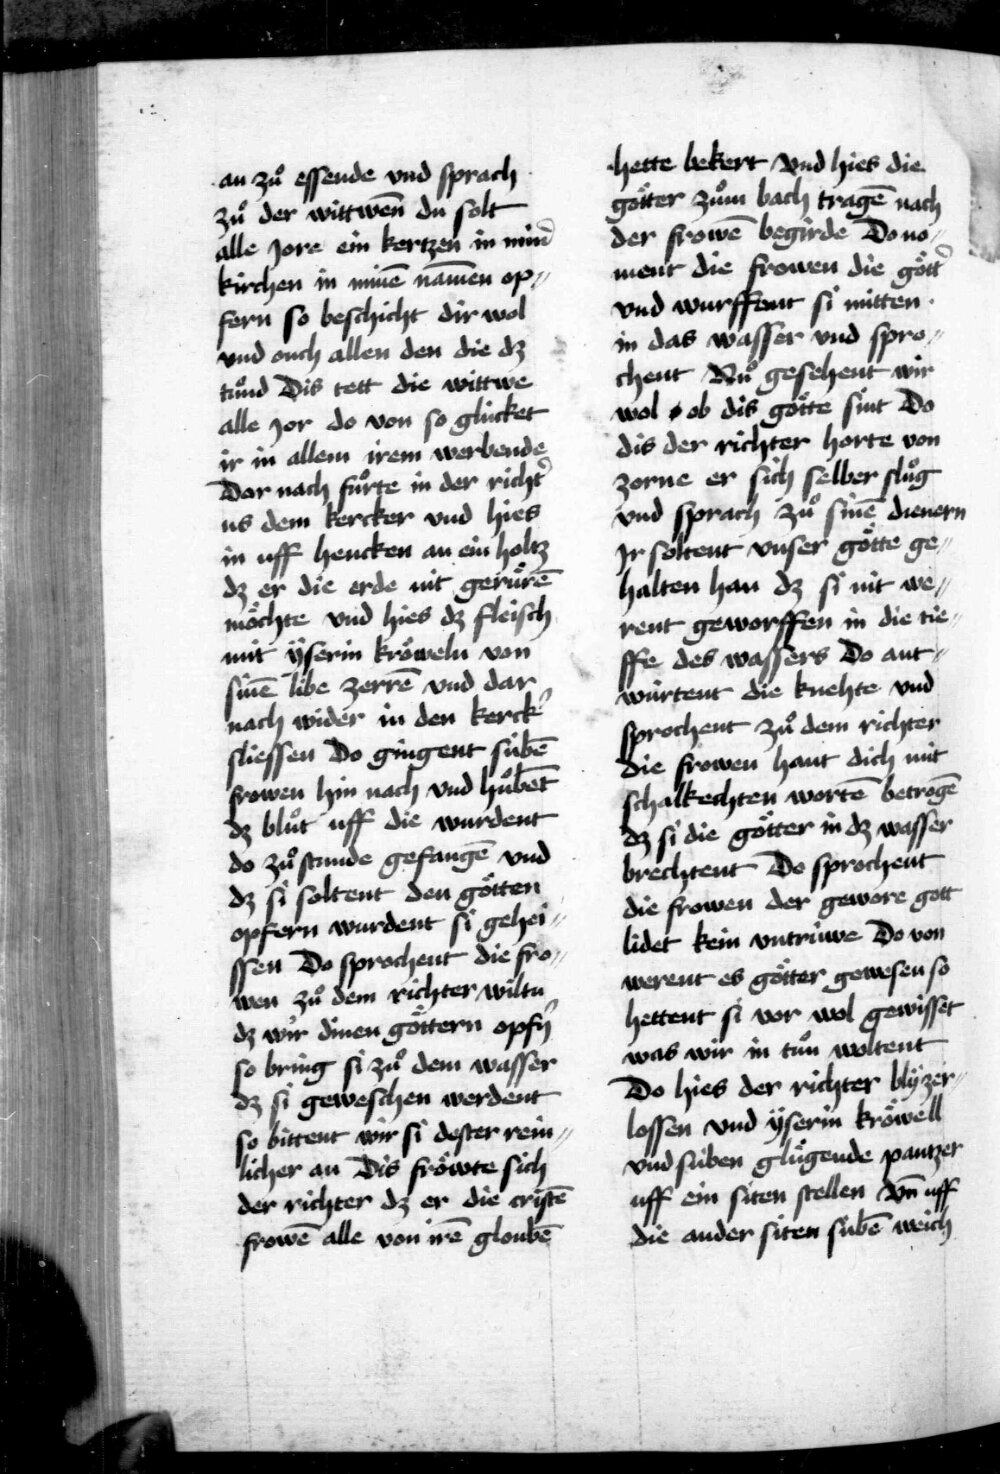 an zuͦ essende vnd sprach
zuͦ der wittwen̄ du solt
alle Jore ein kertzen in min᷑
kirchen in minē nam̄en op〃
fern so beschicht dir wol
vnd ouch allen den die dꝫ
tuͦnd Dis tett die wittwe
alle Jor do von so glúcket
ir in allem irem werbende
Dar nach fuͦrte in der richt᷑
us dem kercker vnd hies
in uff hencken an ein holtz
dꝫ er die erde nit geruͤrē
moͤchte vnd hies dꝫ fleisch
mit ÿserin kroͤweln von
sinē libe zerrē vnd dar
nach wider in den kerck᷑
sliessen Do gingent súbē
frowen hin nach vnd huͦbēt
dꝫ bluͦt uff die wurdent
do zuͦ stunde gefangē vnd
dꝫ si soltent den goͤtten
opfern wurdent si gehei〃
ssen Do sprochent die fro〃
wen zuͦ dem richter wiltu
dꝫ wir dinen goͤttern opfn᷑
so bring si zuͦ dem wasser
dꝫ si geweschen werdent
so bittent wir si dester rein〃
licher an Dis froͤwte sich
der richter dꝫ er die cristē
frowē alle von irē gloubē
hette bekert Vnd hies die
goͤtter zuͦm bach tragē nach
der frowē begirde Do no〃
ment die frowen die goͤtt᷑
vnd wurffent si mitten
in das wasser vnd spro〃
chent Nuͦ gesehent wir
wol ob dis goͤtte sint Do
dis der richter horte von
zorne er sich selber sluͦg
vnd sprach zuͦ sinē dienern
Ir soltent vnser goͤtte ge〃
halten han dꝫ si nit we〃
rent geworffen in die tie〃
ffe des wassers Do ant〃
wúrtent die knehte vnd
sprochent zuͦ dem richter
die frowen hant dich mit
schalkechten wortē betrogē
dꝫ si die goͤtter in dꝫ wasser
brechtent Do sprochent
die frowen der gewore gott
lidet kein vntrúwe Do von
werent es goͤtter gewesen so
hettent si vor wol gewisset
was wir in tuͦn woltent
Do hies der richter blÿ zer〃
lossen vnd ÿserin kroͤwell
vnd súben gluͤgende pantzer
uff ein siten stellen Vn̄ uff
die ander siten súbē weich